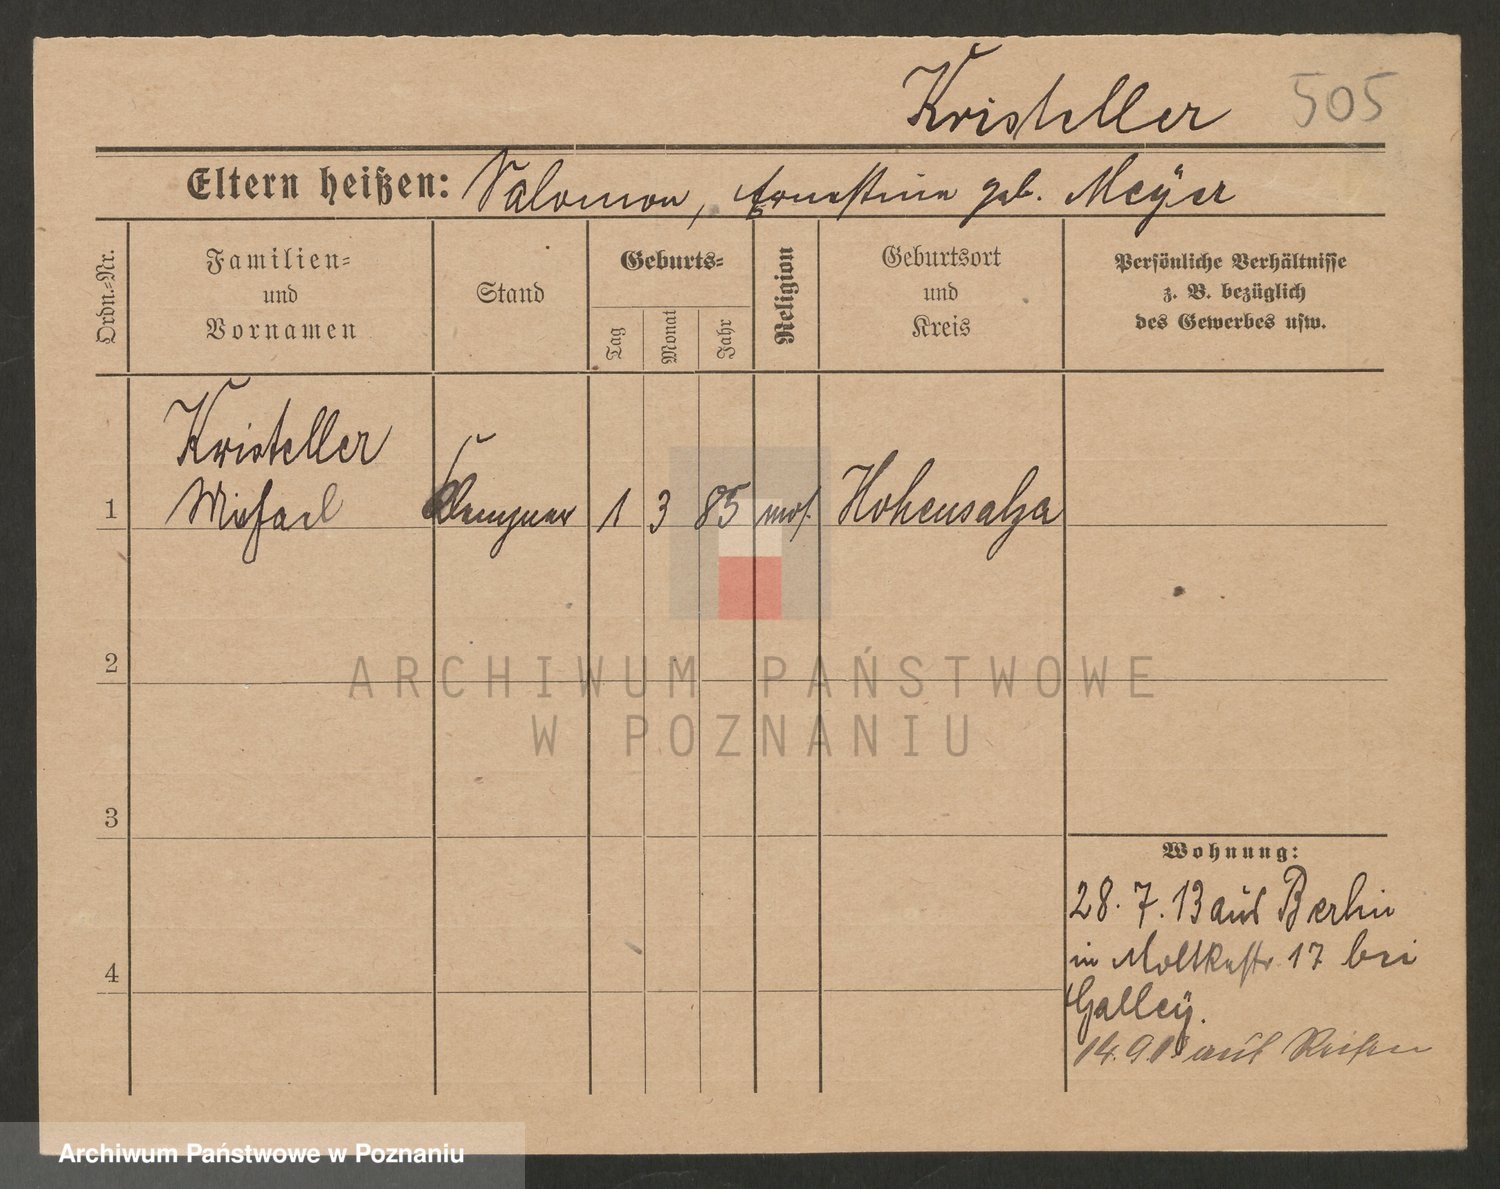 Kristeller 505
Eltern heißen: Salomon, Ernestine geb. Meÿer
Ordn.=Nr.
Familien=
und
Vornamen
Stand
Geburts=
Tag
Monat
Jahr
Religion
Geburtsort
und
Kreis
Persönliche Verhältnisse
z. B. bezüglich
des Gewerbes usw.
Kristeller
1 Michael Klempner 1 3 85 mos. Hohensalza
2
3
4
Wohnung:
28. 7. 13 aus Berlin
in Moltkestr. 17 bei
Galleÿ.
14. 9 13 auf Reisen
ARCHIWUM PAŃSTWOWE
W POZNANIU
Archiwum Państwowe w Poznaniu